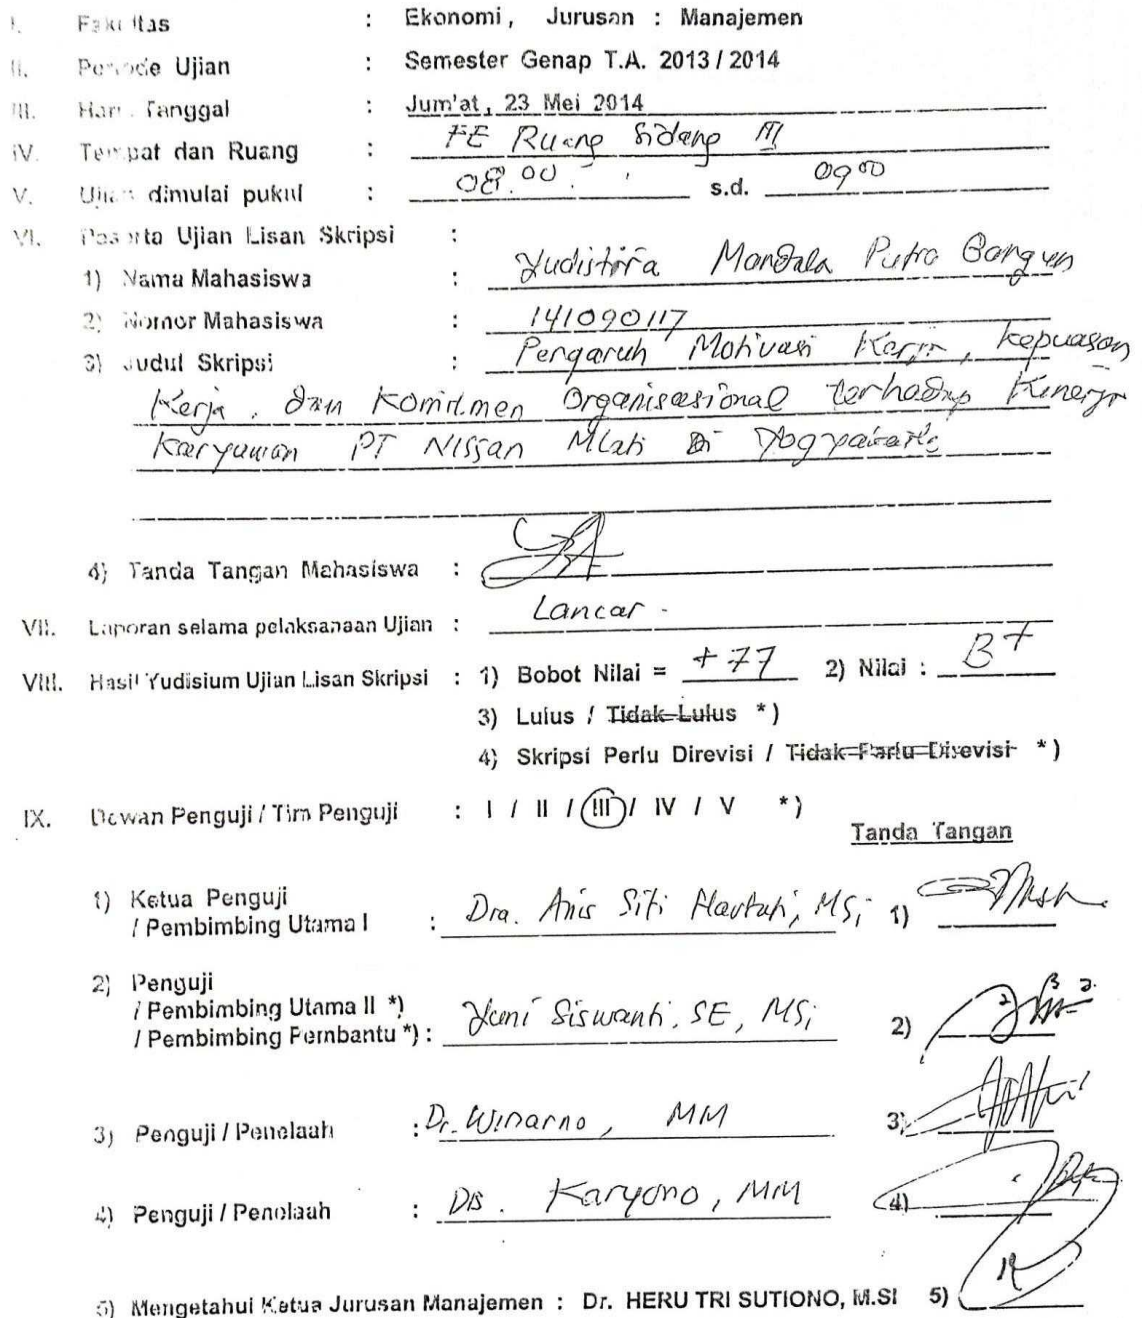 I. Fakultas : Ekonomi, Jurusan : Manajemen
II. Periode Ujian : Semester Genap T.A. 2013 / 2014
III. Hari, Tanggal : Jum'at, 23 Mei 2014
IV. Tempat dan Ruang : FE Ruang Sidang III
V. Ujian dimulai pukul : 08.00 s.d. 09 00
VI. Peserta Ujian Lisan Skripsi :
1) Nama Mahasiswa : Yudistira Mandala Putra Bangun
2) Nomor Mahasiswa : 141090117
3) Judul Skripsi : Pengaruh Motivasi Kerja, Kepuasan
Kerja, dan Komitmen Organisasional terhadap Kinerja
Karyawan PT Nissan Mlati Di Yogyakarta
4) Tanda Tangan Mahasiswa :
VII. Laporan selama pelaksanaan Ujian : Lancar -
VIII. Hasil Yudisium Ujian Lisan Skripsi : 1) Bobot Nilai = +77 2) Nilai : B+
3) Lulus / Tidak Lulus *)
4) Skripsi Perlu Direvisi / Tidak Perlu Direvisi *)
IX. Dewan Penguji / Tim Penguji : I / II / III / IV / V *)
Tanda Tangan
1) Ketua Penguji
/ Pembimbing Utama I : Dra. Anis Siti Hartati, MSi 1)
2) Penguji
/ Pembimbing Utama II *)
/ Pembimbing Pembantu *) : Yuni Siswanti, SE, MSi 2)
3) Penguji / Penelaah : Dr. Winarno, MM 3)
4) Penguji / Penelaah : Drs. Karyono, MM 4)
5) Mengetahui Ketua Jurusan Manajemen : Dr. HERU TRI SUTIONO, M.SI 5)